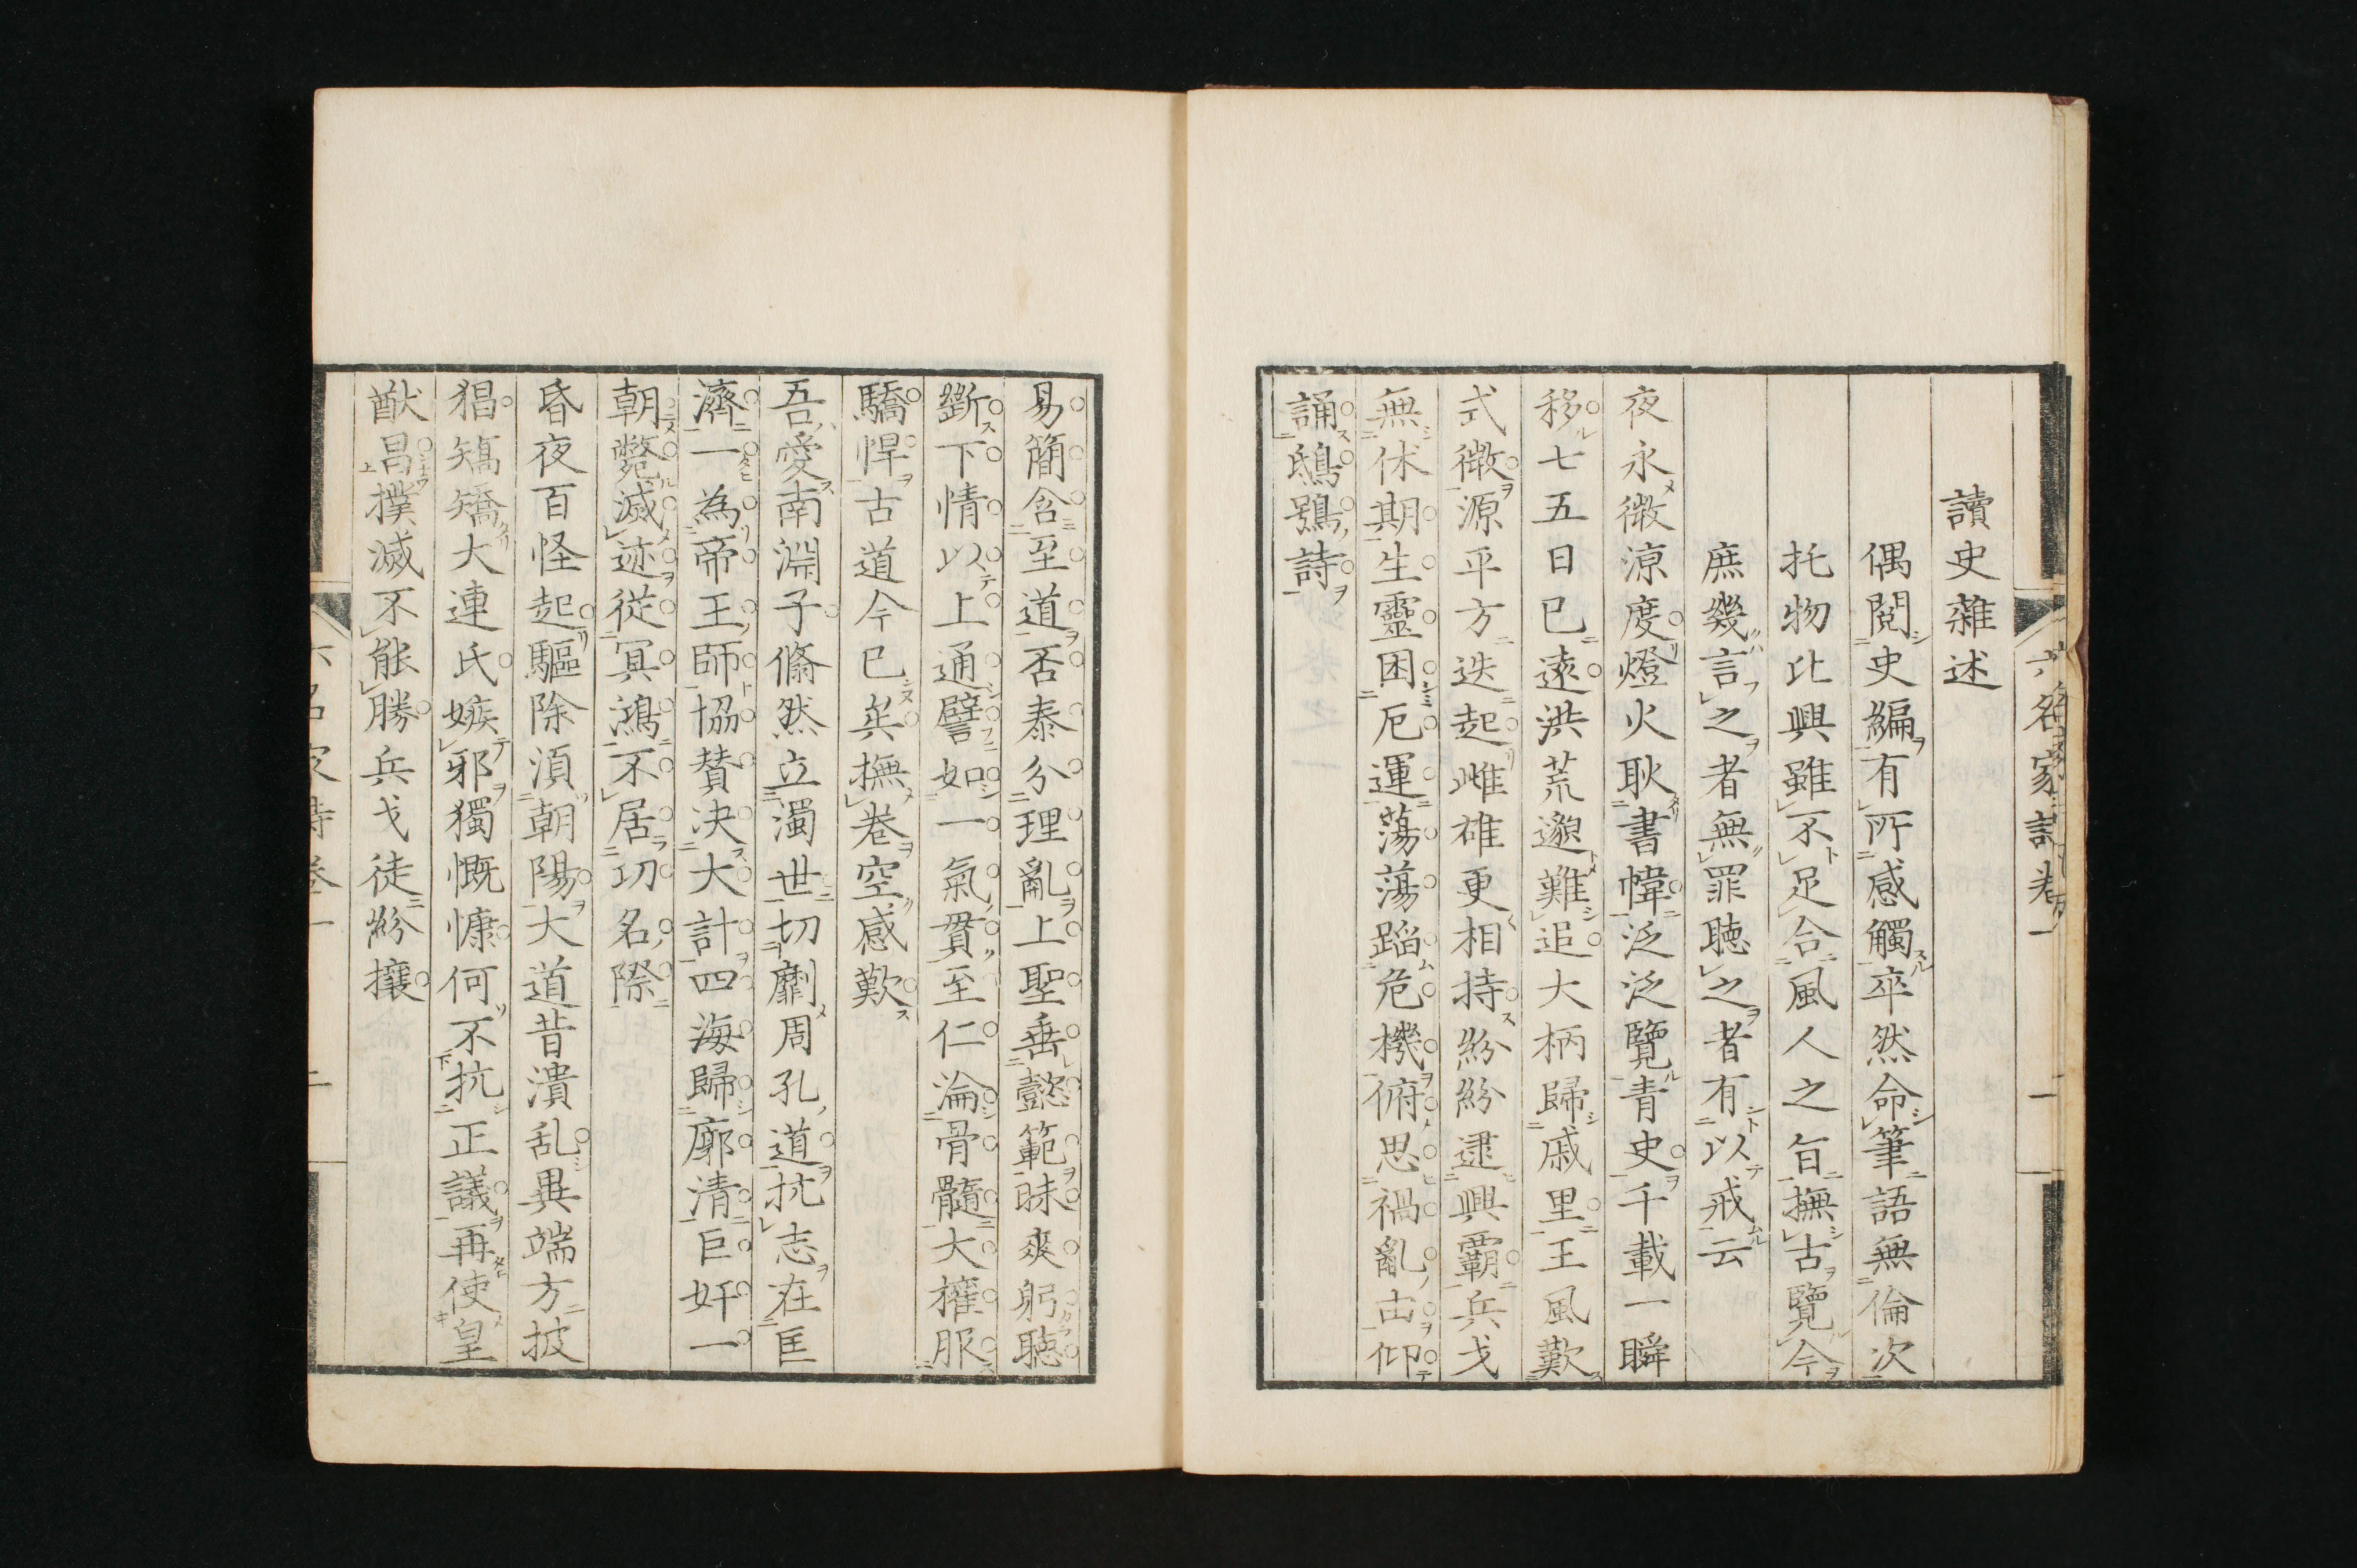 讀史雜述
偶閱史編有所感觸卒然命筆語無倫次
托物比興雖不足合風人之旨撫古覽今
庶幾言之者無罪聽之者有以戒云
夜永微涼度燈火耿書幃泛泛覽青史千載一瞬
移七五日已遠洪荒邈難追大柄歸戚里王風歎
式微源平方迭起雌雄更相持紛紛逮興覇兵戈
無休期生靈困厄運蕩蕩蹈危機俯思禍亂由仰
誦鴟鴞詩
易簡含至道否泰分理亂上聖垂懿範昧爽躬聽
斷下情以上通譬如一氣貫至仁淪骨髓大權服
驕悍古道今已矣撫卷空感歎
吾愛南淵子翛然立濁世切劘周孔道抗志在匡
濟一為帝王師協贊決大計四海歸廓清巨奸一
朝斃滅迹從冥鴻不居功名際
昏夜百怪起驅除湏朝陽大道昔潰乱異端方披
猖矯矯大連氏嫉邪獨慨慷何不抗正議再使皇
猷昌撲滅不能勝兵戈徒紛攘
六名家詩卷一
二
六名家詩卷一
一